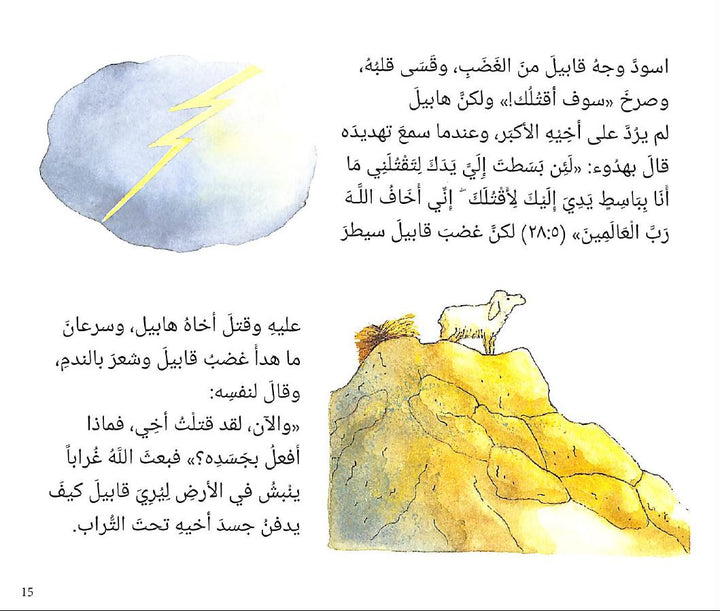 اسودَّ وجهُ قابيلَ منَ الغَضَبِ، وقَسَى قلبُهُ،
وصرخَ «سوف أقتُلُك!» ولكنَّ هابيلَ
لم يرُدَّ على أخِيْهِ الأكبَر، وعندما سمعَ تهديدَه
قالَ بهدُوء: «لَئِن بَسَطتَ إِلَيَّ يَدَكَ لِتَقْتُلَنِي مَا
أَنَا بِبَاسِطٍ يَدِيَ إِلَيْكَ لِأَقْتُلَكَ ۖ إِنِّي أَخَافُ اللَّهَ
رَبَّ الْعَالَمِينَ» (٢٨:٥) لكنَّ غضبَ قابيلَ سيطرَ
عليهِ وقتلَ أخاهُ هابيل، وسرعانَ
ما هدأَ غضبُ قابيلَ وشعرَ بالندمِ،
وقالَ لنفسِه:
«والآن، لقد قتلْتُ أخِي، فماذا
أفعلُ بجَسَدِه؟» فبعثَ اللَّهُ غُراباً
ينْبشُ في الأرضِ لِيُرِيَ قابيلَ كيفَ
يدفنُ جسدَ أخيهِ تحتَ التُّراب.
15